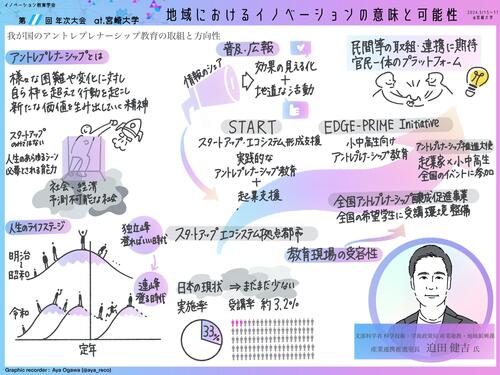 イノベーション教育学会
第11回 年次大会 at.宮崎大学
地域におけるイノベーションの意味と可能性
2024.5/15~17
@宮崎大学
我が国のアントレプレナーシップ教育の取組と方向性
アントレプレナーシップとは
様々な困難や変化に対し
自ら枠を超えて行動を起こし
新たな価値を生み出していく精神
スタートアップ
のみではない
人生のあらゆるシーン
必要とされる能力
社会・経済
予測不可能な社会
普及・広報
情報のシェア
効果の見える化
+
地道な活動
民間等の取組・連携に期待
官民一体のプラットフォーム
START
スタートアップ・エコシステム形成支援
実践的な
アントレプレナーシップ教育
+
起業支援
EDGE-PRIME Initiative
小中高生向け
アントレプレナーシップ教育
アントレプレナーシップ推進大使
起業家×小中高生
全国のイベントに参加
全国アントレプレナーシップ醸成促進事業
全国の希望学生に受講環境整備
スタートアップエコシステム拠点都市
教育現場の受容性
人生のライフステージ
独立峰
登ればいい時代
明治
昭和
連山峰
登る時代
令和
定年
日本の現状 → まだまだ少ない
実施率
33%
受講率 約3.2%
文部科学省 科学技術・学術政策局 産業連携・地域振興部
産業連携推進室長 迫田 健吉 氏
Graphic recorder : Aya Ogawa (@aya_reco)